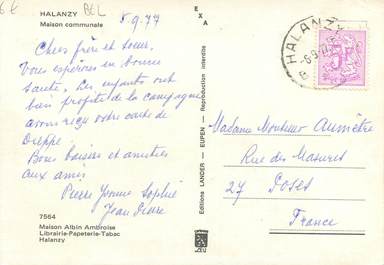 6 €
BEL
HALANZY
Maison communale
5.9.77
Chers frère et soeur,
Vous espérons en bonne
santé. Les enfants ont
bien profité de la campagne
avons reçu votre carte de
Dieppe.
Bons baisers et amitiés
aux amis
Pierre Yvonne Sophie
Jean Pierre
7564
Maison Albin Ambroise
Librairie-Papeterie-Tabac
Halanzy
EXA
Editions LANDER — EUPEN — Reproduction interdite
HALANZY
Madame Monsieur
Rue des Masures
27 Poses
France